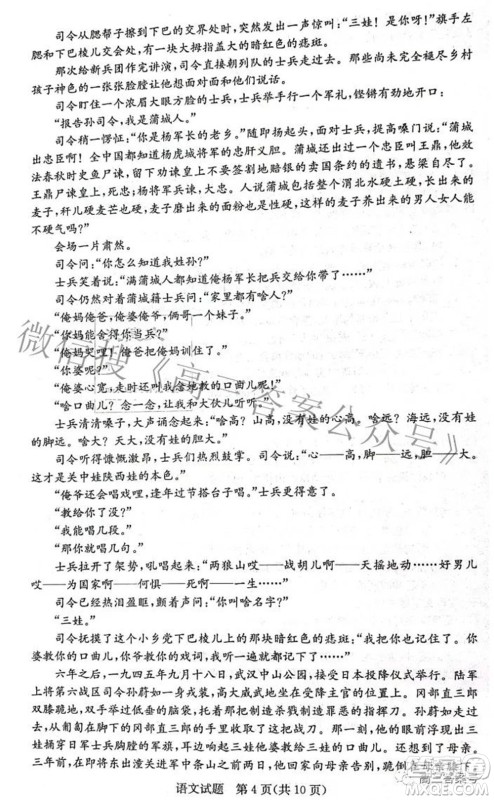 司令从腮帮子擦到下巴的交界处时，突然发出一声惊叫：“三娃！是你呀！”旗手左
腮和下巴棱儿交会处，有一块大拇指盖大的暗红色的痣斑。
那次给新兵团作完讲演，司令接着朝队列整齐的士兵走过去。那些尚未完全褪尽乡村
孩子神色的一张张脸膛让他感到可爱。他随意问着和他们说话。
司令盯住一个浓眉大眼方脸的士兵，士兵举手行一个军礼，铿锵有劲地开口：
“报告孙司令，我是蒲城人。”
司令稍一愣怔：“你是杨军长的老乡。”随即扬起头，面对士兵，提高嗓门说：“蒲城
出忠臣啊！全中国都知道杨虎城将军的忠肝义胆。蒲城还出过一个忠臣叫王鼎，他
效法春秋时史鱼尸谏，劝谏道光皇上不要签割地赔银的卖国条约的道光皇上。
王鼎尸谏皇上，死忠；杨将军兵谏，大忠。人说蒲城包括整个渭北水硬土硬，长出来的
麦子，秆儿硬麦芒也硬，麦子磨出来的面粉也硬，这样的麦子养出来的男人女人能
不硬气吗？”
会场一片肃然。
司令问：“你怎么知道我姓孙？”
士兵笑着说：“满蒲城人都知道俺杨军长把兵交给你带了……”
司令仍然对着蒲城籍士兵问：“家里都有啥人？”
“俺爷俺婆，俺爸俺妈，俩个哥一个妹子。”
“你妈能舍得你当兵？”
“俺妈哭哩！俺爸把俺妈训住了。”
“你婆呢？”
“俺婆心宽，走时还叫我念她教的口曲儿呢！”
“啥口曲儿？念一念，让我和大伙儿听听。”
士兵清清嗓子，大声诵念起来：“啥高？山高，没有娃的心高。啥远？海远，没有娃
的脚远。啥大？天大，没有娃的胆大。”
司令听得慷慨激昂，士兵们热烈鼓掌。司令说：“心——高，脚——远，胆——大。
这是关中娃陕西娃的本色。”
“俺爷还会唱戏哩，逢年过节搭台子唱。”士兵更得意了。
“教给你了没？”
“我能唱几段。”
“那你就唱几句。”
士兵拉开了架势，吼唱起来：“两狼山哎——战胡儿啊——天摇地动——好男儿
哎——为国家啊——何惧——死啊——一生……”
司令已经热泪盈眶，颤着声问：“你叫啥名字？”
“三娃。”
司令抚摸了这个小乡党下巴棱儿上的那块暗红色的痣斑：“我把你记下了。你
婆教你的口曲儿，你爷教你的戏词，我听一遍就记下了，忘不了。”
六年之后，一九四五年九月十八日，武汉中山公园，接受日本投降仪式举行。陆军
上将第六战区司令孙蔚如一身戎装，高大威武地坐在受降主官的位置上。冈部直三郎
双膝跪地，双手举过低垂的脑袋，托着那把制造杀戮制造罪恶的指挥刀。孙蔚如久久地
瞅着冈部直三郎的头顶，却不去接受那把带着血腥气的战刀。他的眼前浮现出三
娃将日军士兵胸膛的旗杆，耳边响起三娃吼唱的秦腔戏词，心里涌出来一句话来：
三年前，在即将出潼关进入中条山之前的动员誓师大会上，那个跪倒在母亲膝下，
语文试题　第 4 页(共 10 页)
微信搜《高三答案公众号》